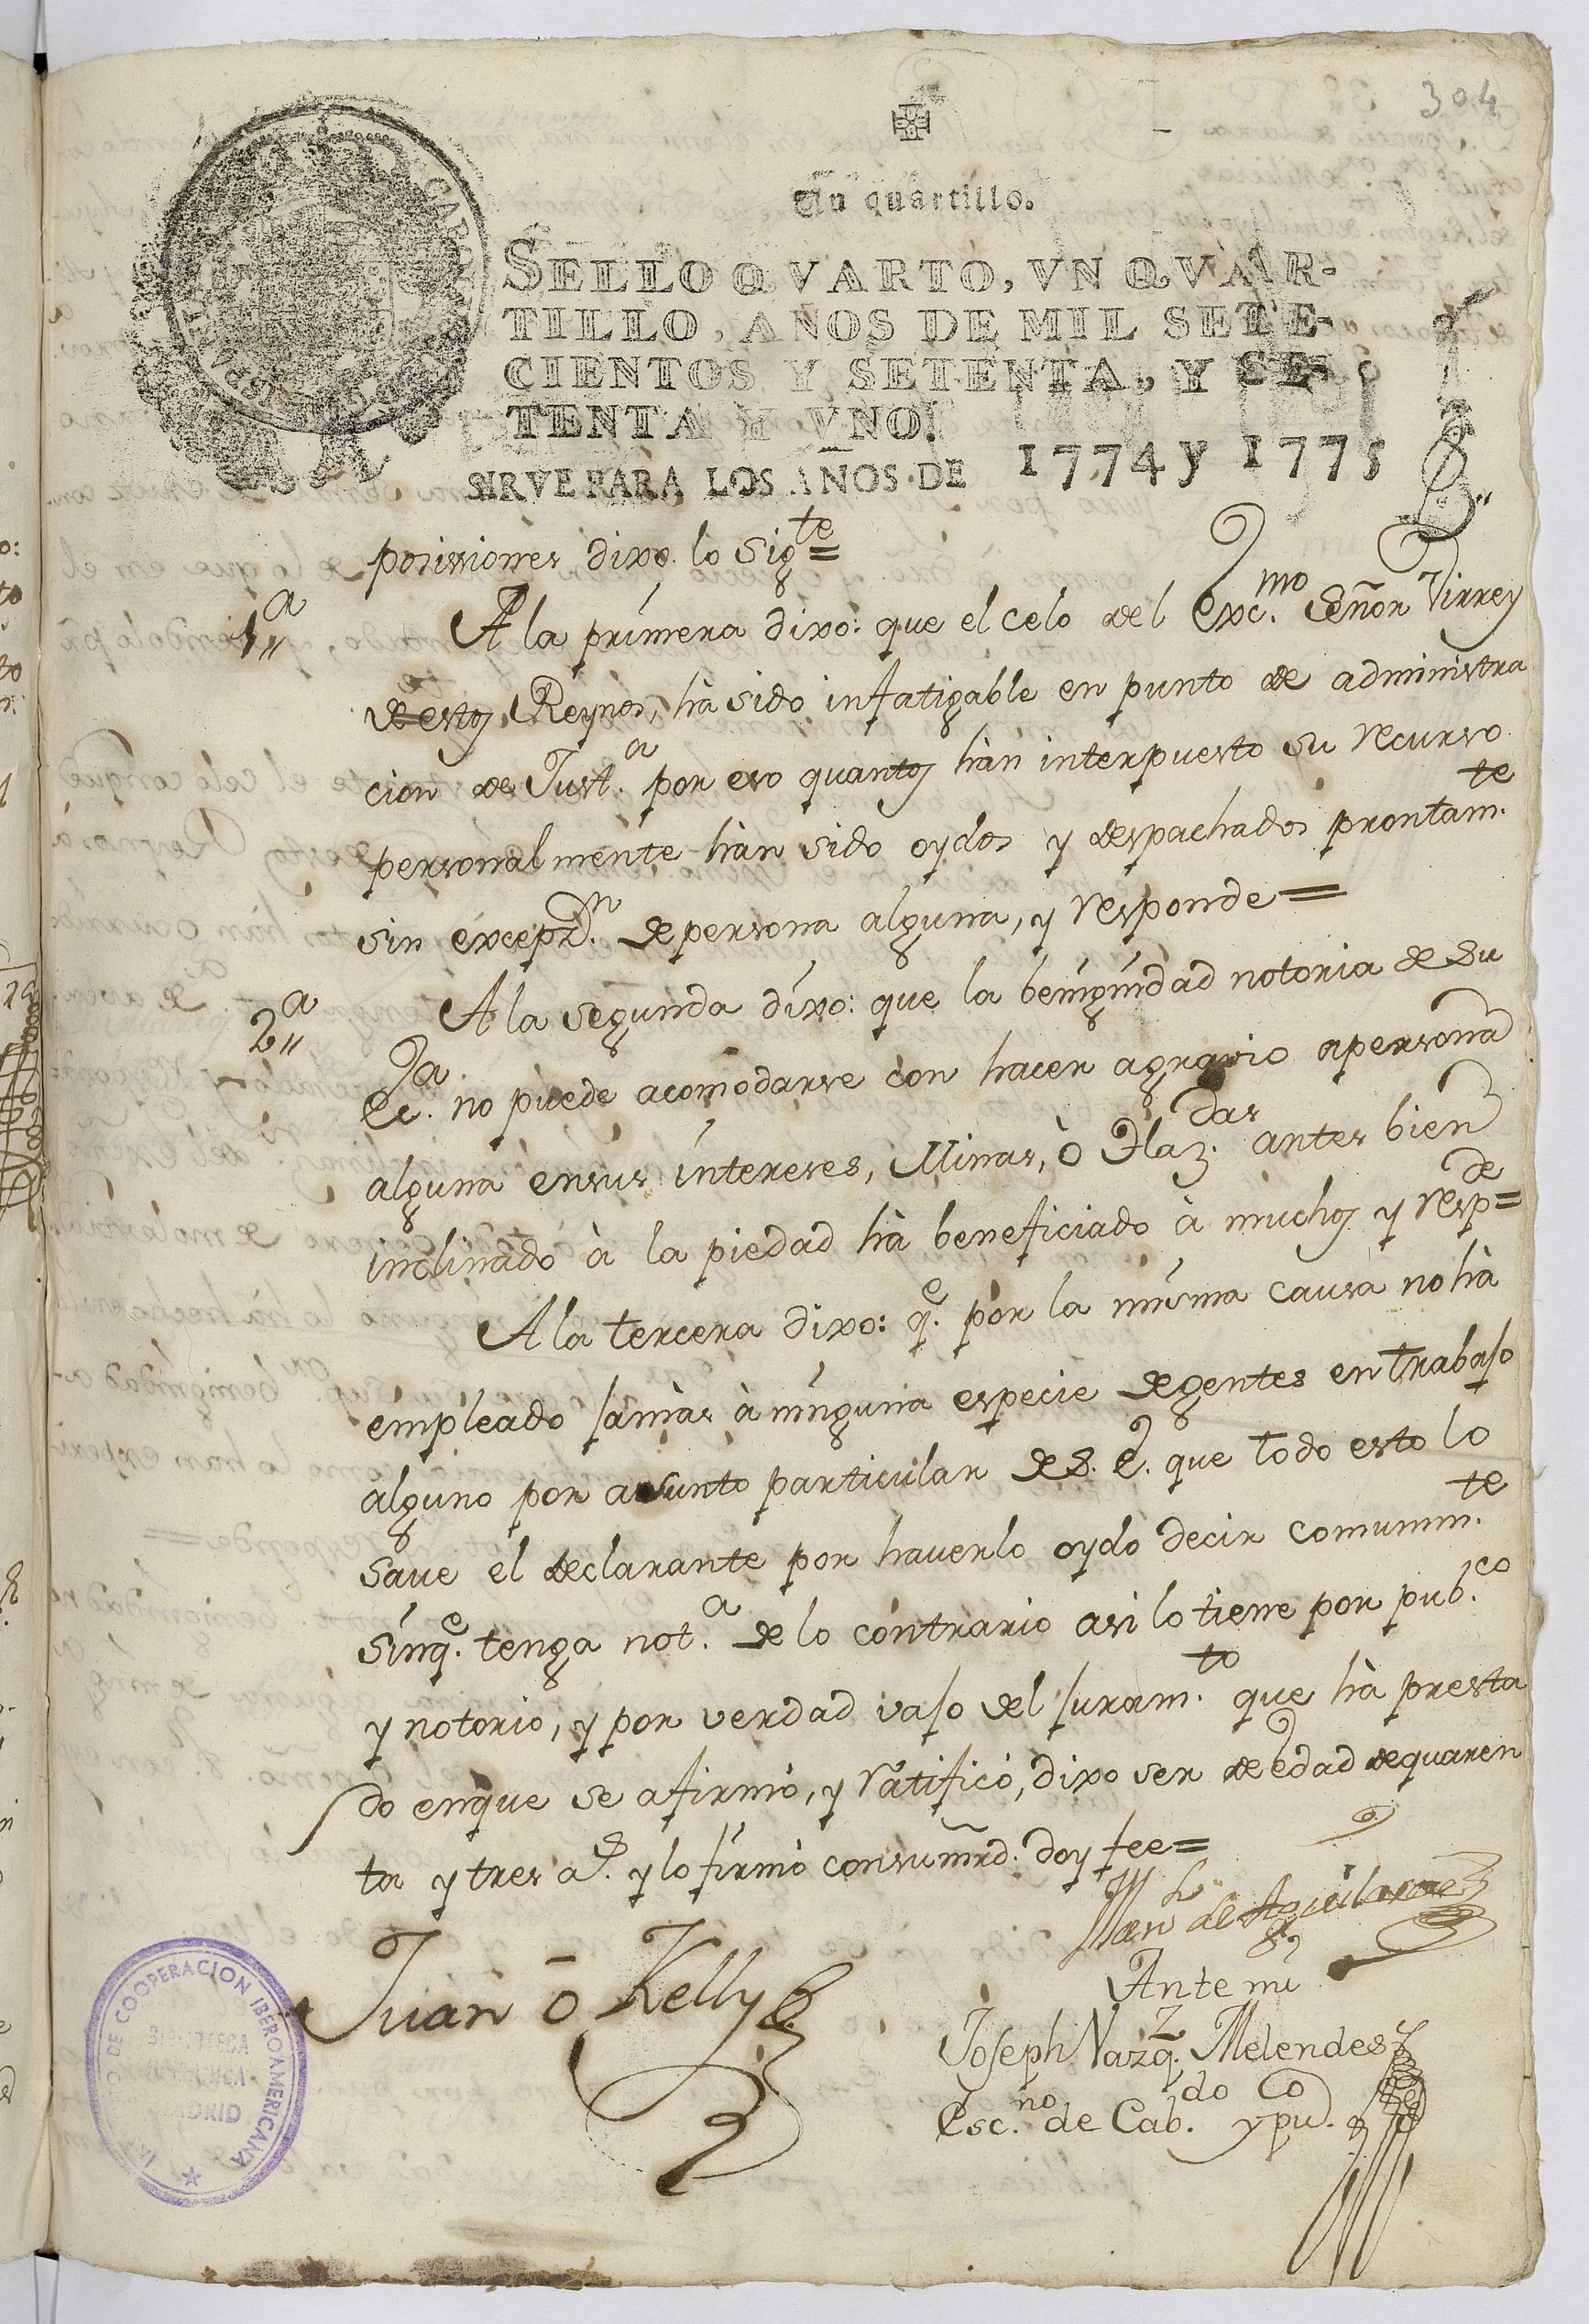 304
Un quartillo.
SELLO QVARTO, VN QVAR-
TILLO, AÑOS DE MIL SETE-
CIENTOS Y SETENTA, Y SE-
TENTA Y VNO.
SIRVE PARA LOS AÑOS DE 1774 y 1775
posissiones dixo lo sig.te=
1.a A la primera dixo: que el celo del Exc.mo Señor Virrey
de estos Reynos, hà sido infatigable en punto de administra
cion de Just.a por eso quantos hàn interpuesto su recurso
personalmente hàn sido oydos y despachados prontam.te
sin excepz.n de persona alguna, y responde=
2.a A la segunda dixo: que la benignidad notoria de su
Ex.a no puede acomodarse con hacer agravio apersona
alguna ensus intereses, Minas, ò Haz.das antes bien
inclinado à la piedad hà beneficiado à muchos y resp.de=
A la tercera dixo: q.e por la misma causa no hà
empleado jamàs à ninguna especie degentes en trabajo
alguno por asunto particular de S. E. que todo esto lo
save el declarante por haverlo oydo decir comunm.te
sinq.e tenga not.a de lo contrario asi lo tiene por pub.co
y notorio, y por verdad vajo del juram.to que hà presta
do enque se afirmó, y ratificó, dixo ser de edad dequaren
ta y tres a.s y lo firmó consumrd. doy fee=
Man.l de Aguilar
Juan ō Kelly
Ante mi
Joseph Vazq.z Melendes
Esc.no de Cab.do y pu.co
INSTITUTO DE COOPERACION IBEROAMERICANA
BIBLIOTECA
HISPANICA
MADRID